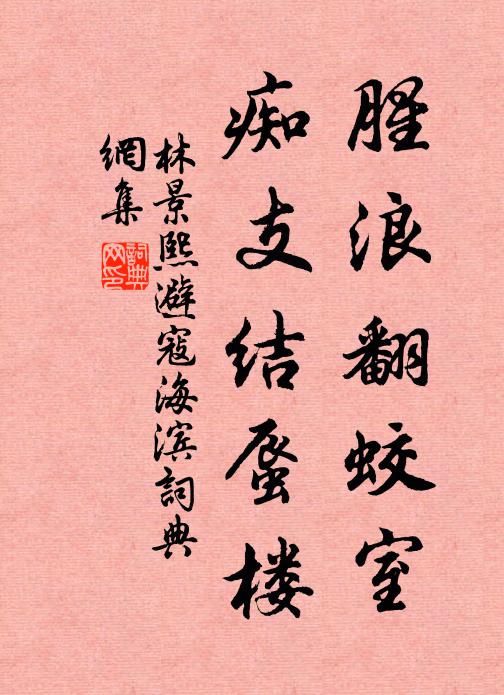 腥浪翻蛟室
痴支结蜃楼
林景熙避寇海滨詞典
網集
詞典
网印